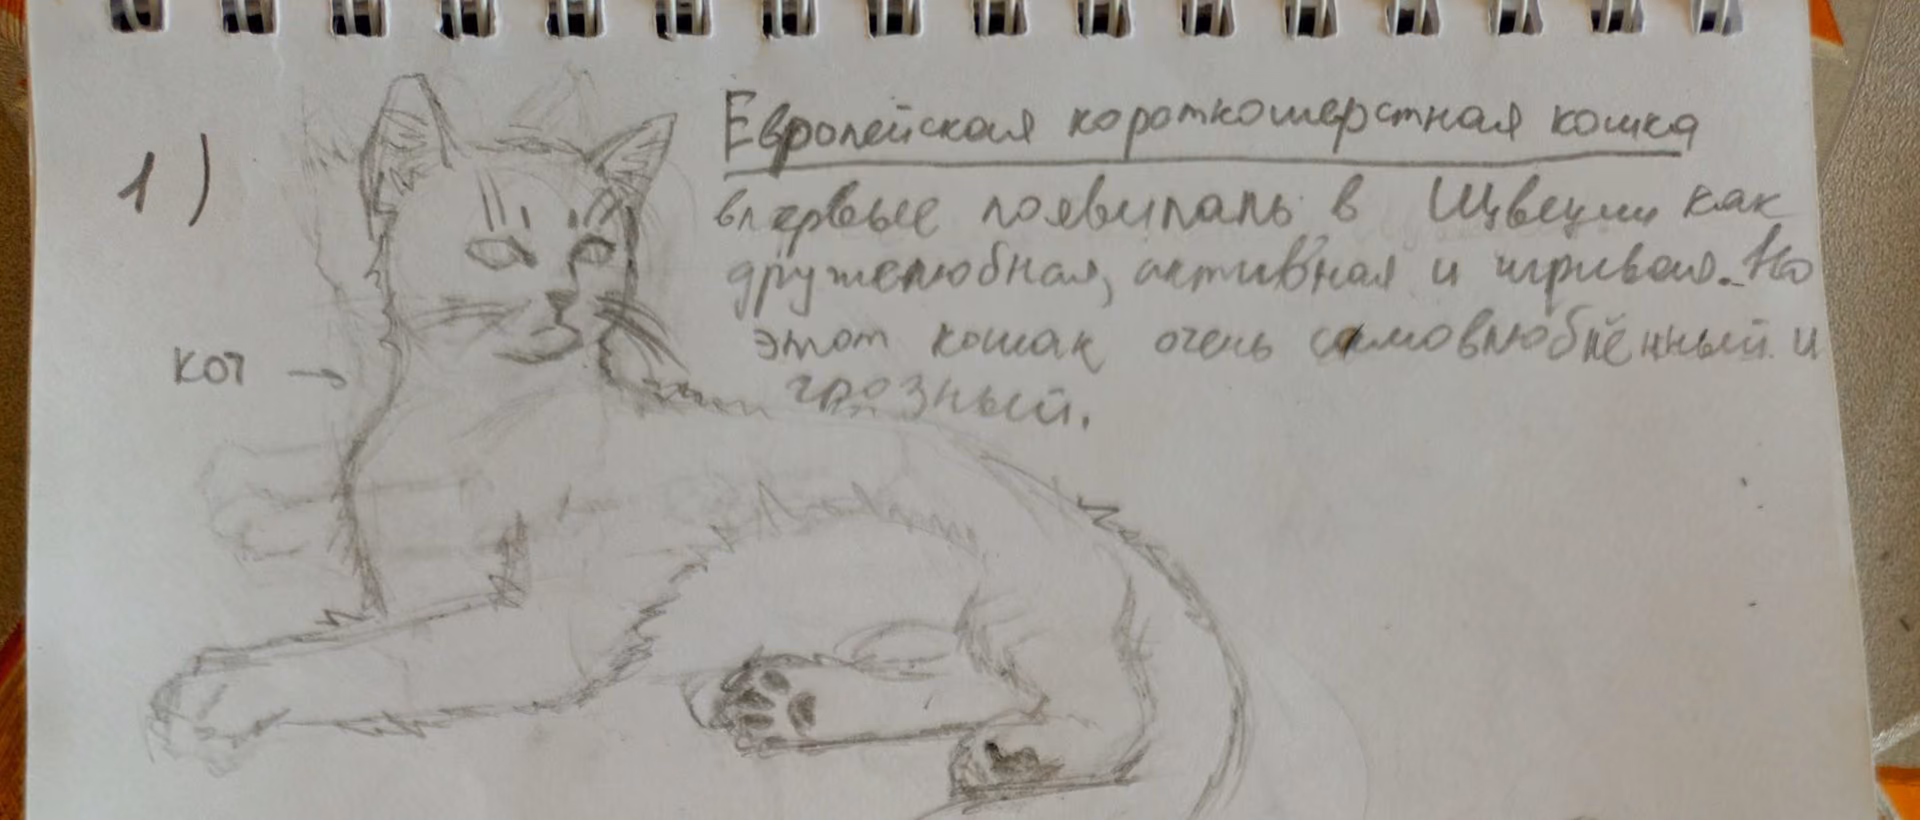 1)
Европейская короткошерстная кошка
впервые появилась в Щвеции как
дружелюбная, активная и игривая. Но
этот кошак очень самовлюблённый и
грозный.
кот →